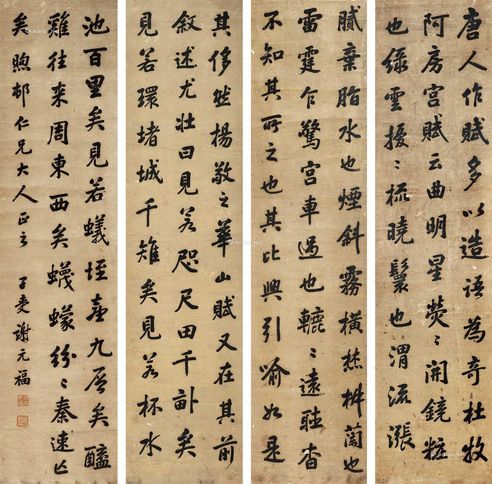 唐人作賦多以造語為奇杜牧
阿房宮賦云曲明星熒〻開鏡粧
也綠雲擾〻梳曉鬟也渭流漲
膩棄脂水也煙斜霧橫焚椒蘭也
雷霆乍驚宮車過也轆〻遠聽杳
不知其所之也其比興引喻如是
其侈然楊敬之華山賦又在其前
敘述尤壯曰見若咫尺田千畝矣
見若環堵城千雉矣見若杯水
池百里矣見若蟻垤臺九層矣醯
雞往來周東西矣蠛蠓紛〻秦速亡
矣煦邨仁兄大人正之
子受謝元福